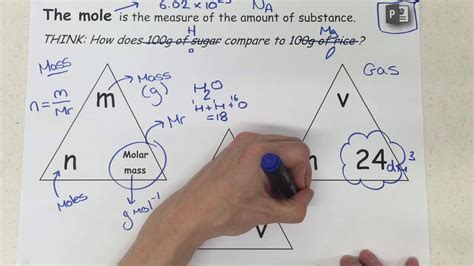 6.02 × 10²³ NA
The mole is the measure of the amount of substance.
H Mg
THINK: How does 100g of sugar compare to 100g of rice?
Mass
n = m/Mr
m
Mass
(g)
n
Molar
mass
Moles
g mol⁻¹
Mr
H₂O
1 16
H + H + O
= 18
v
Gas
24 dm³
v
P